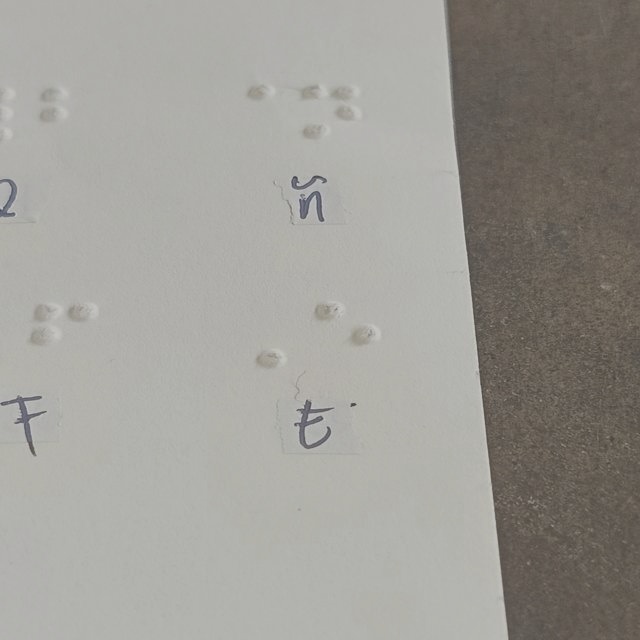 ñ
F E